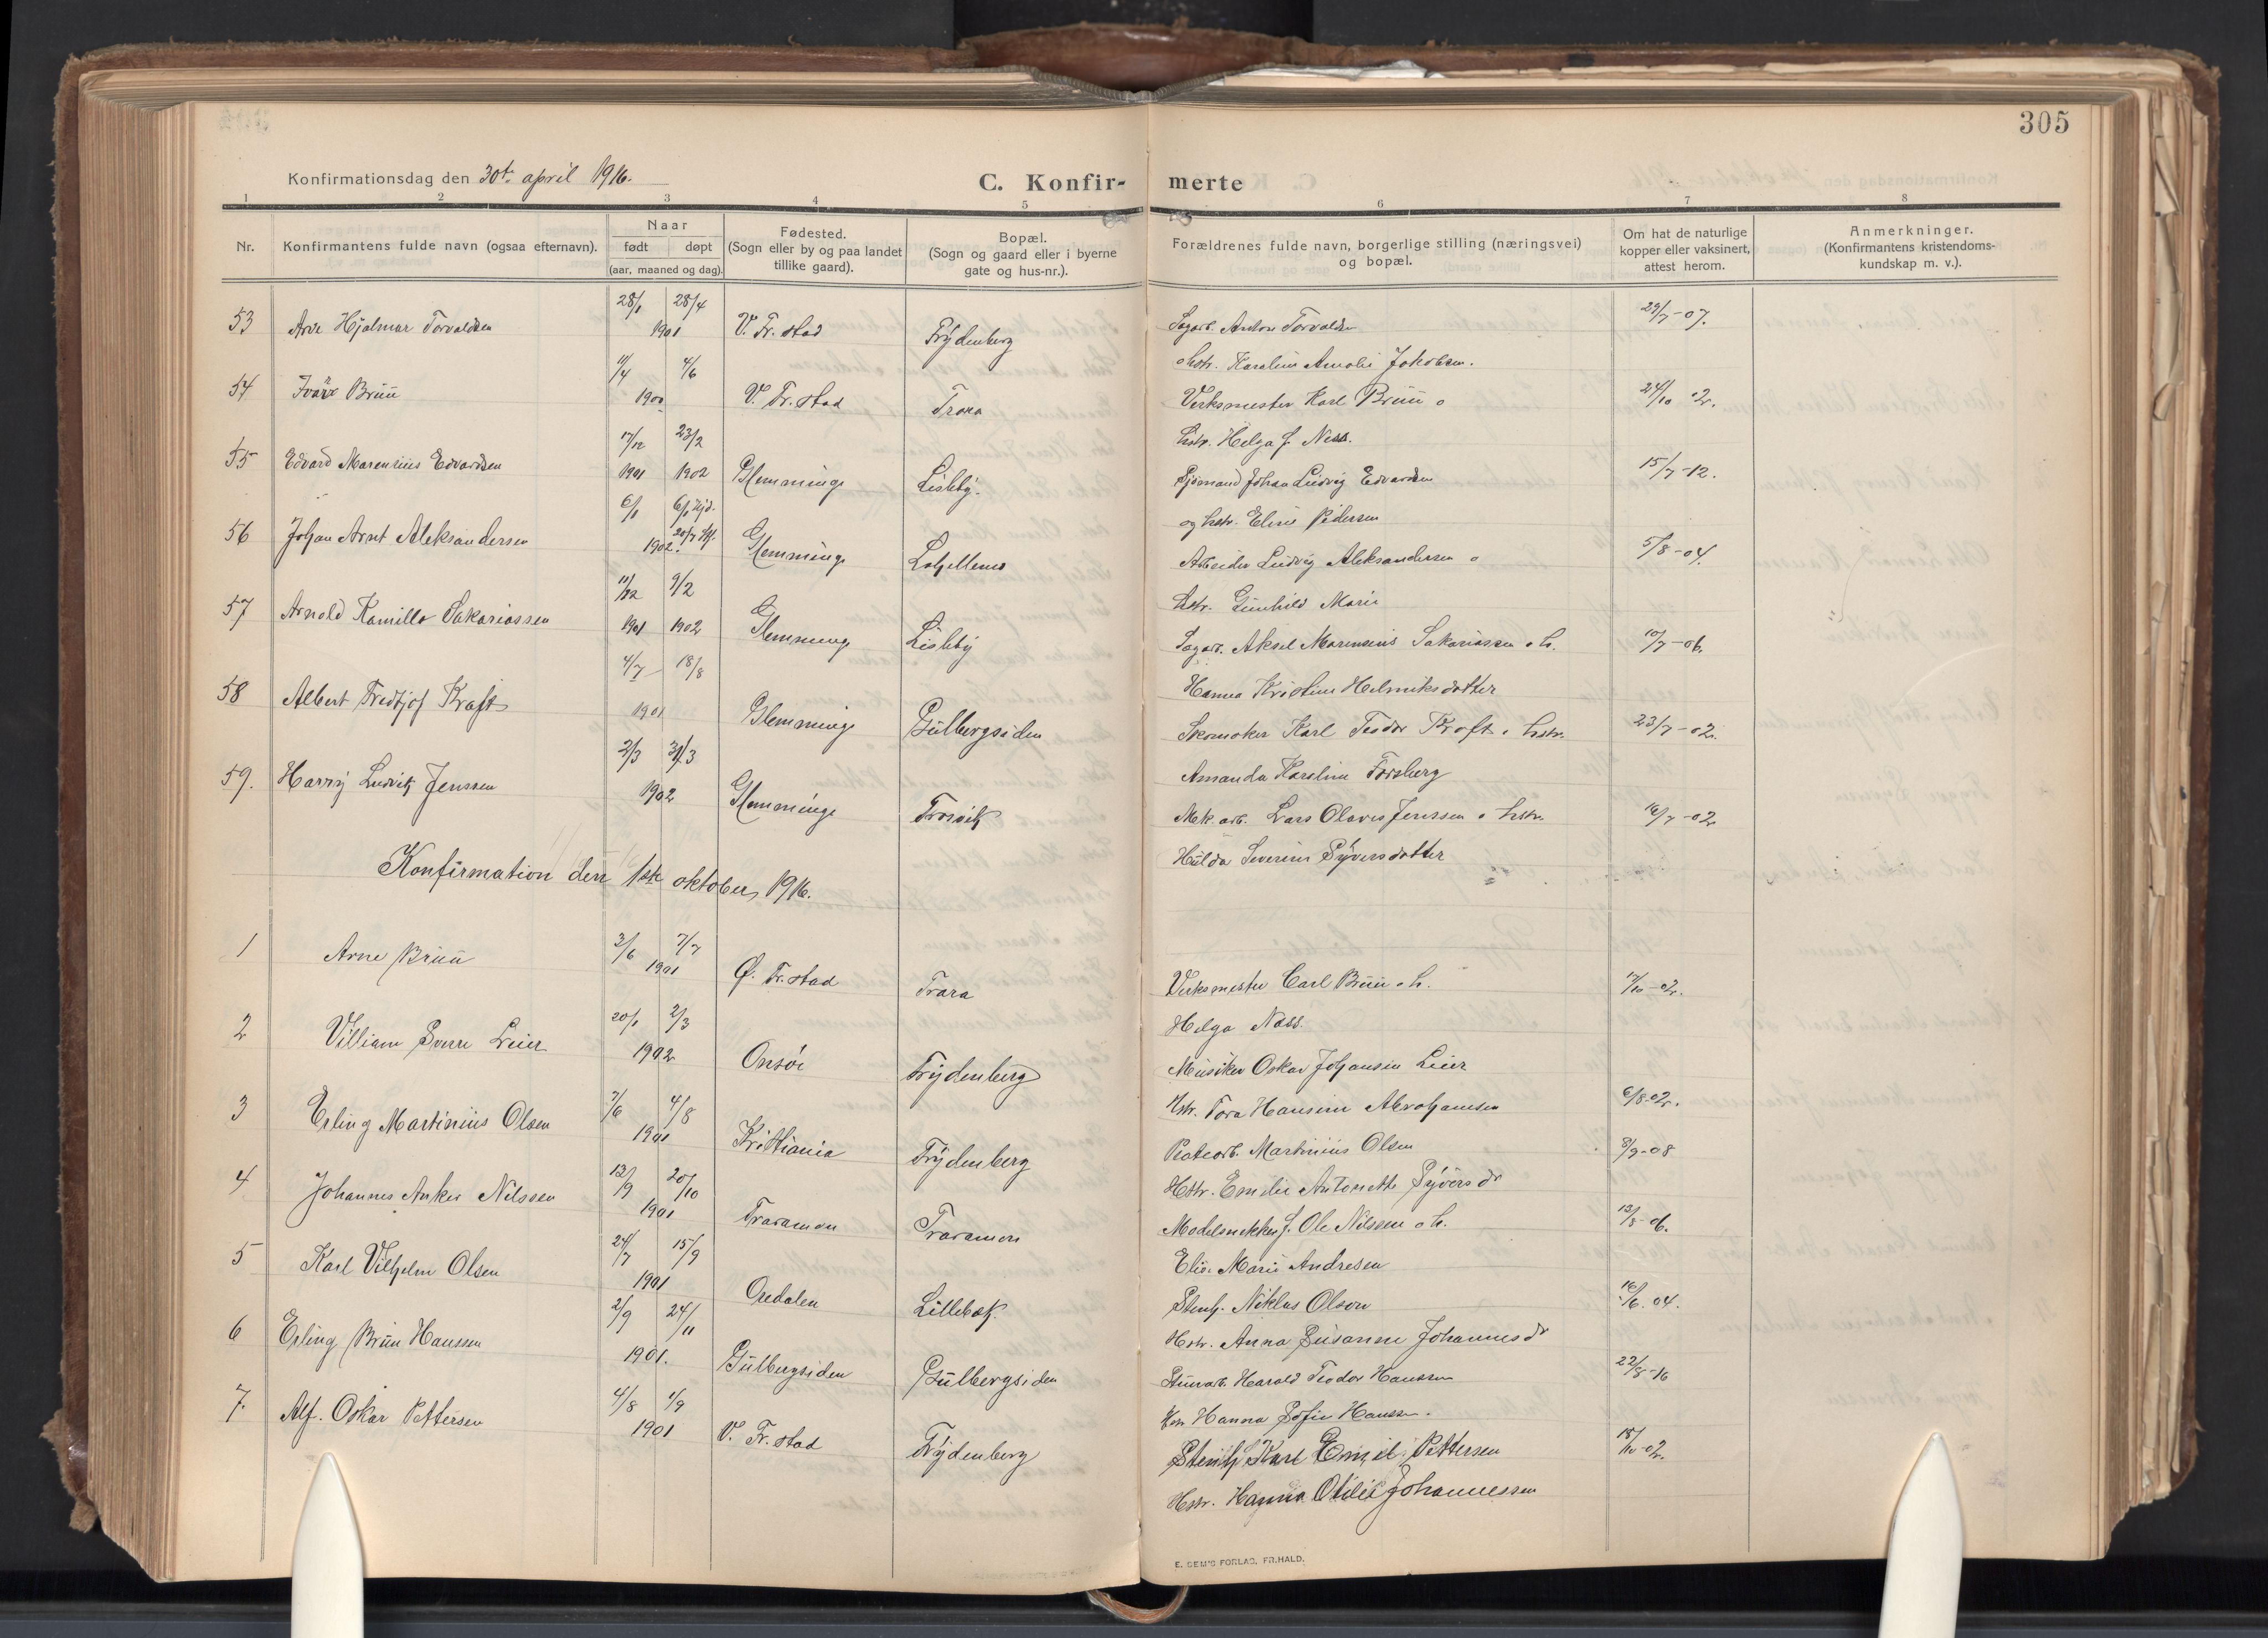 305
Konfirmationsdag den 30te april 1916.
C. Konfir-merte
1 2 3 4 5 6 7 8
Nr.
Konfirmantens fulde navn (ogsaa efternavn).
Naar
født døpt
(aar, maaned og dag).
Fødested.
(Sogn eller by og paa landet
tillike gaard).
Bopæl.
(Sogn og gaard eller i byerne
gate og hus-nr.).
Forældrenes fulde navn, borgerlige stilling (næringsvei)
og bopæl.
Om hat de naturlige
kopper eller vaksinert,
attest herom.
Anmerkninger.
(Konfirmantens kristendoms-
kundskap m. v.).
53 Arve Hjalmar Torvaldsen 28/1 28/4 1901 V. Fr.stad Frydenberg Sagarb. Anton Torvaldsen 29/7-07.
o hstr. Karoline Amalie Jakobsen.
54 Ivar Bruu 11/4 4/6 1900 V. Fr.stad Trara Verksmester Karl Bruu o 24/10 02.
hstr. Helga J. Ness.
55 Edvard Marensius Edvardsen 17/12 1901 23/2 1902 Glemminge Lisleby. Sjømand Johan Ludvig Edvardsen 15/7-12.
og hstr. Eline Pedersen
56 Johan Arnt Aleksandersen 6/1 6/1 hjd. 20/7 1902. Glemminge Arbeider Ludvig Aleksandersen o 5/8-04.
hstr. Gunhild Marie
57 Arnold Kamillo Sakariassen 11/12 1901 9/2 1902 Glemminge Lisleby Sagarb. Aksel Marensius Sakariassen o h. 10/7-06.
Hanna Kristine Helmiksdatter
58 Albert Fredtjof Kraft 4/7 18/8 1901 Glemminge Gulbergsiden Skomaker Karl Teodor Kraft o hstr. 23/7-02.
Amanda Karoline Forsberg
59. Harry Ludvik Jenssen 2/3 31/3 1902 Glemminge Trosvik Mek. arb. Lars Olaves Jenssen o hstr. 16/7-02
Hulda Severine Syversdatter
Konfirmation den 1ste oktober 1916.
1 Arne Bruu 3/6 7/7 1901 Ø. Fr.stad Trara Verksmester Carl Bruu o h. 17/10-02.
Helga Næss.
2 Villiam Sverre Leier 20/1 2/3 1902 Onsøe Frydenberg Musiker Oskar Johansen Leier
Hstr. Tora Hansine Abrahamsen 6/8-02.
3 Erling Martinius Olsen 7/6 4/8 1901 Kristiania Frydenberg Platearb. Martinius Olsen 8/9-08
Hstr. Emilie Antonette Syversdr
4 Johannes Anker Nilssen 13/9 20/10 1901 Traramon Traramon Modelsnekker J. Ole Nilssen o h. 13/8-06.
Elise Marie Andresen
5 Karl Vilhjelm Olsen 24/7 15/9 1901 Oredalen Lillebæk. Stenh. Niklas Olsen 16/6. 04.
Hstr. Anna Susanne Johannesdr
6 Erling Bruu Hanssen 2/9 24/11 1901. Gulbergsiden Gulbergsiden Harald Teodor Hanssen 22/8-16
Hstr Hanna Sofie Hanssen.
7. Alf. Oskar Pettersen 4/8 1/9 1901 V. Fr.stad Frydenberg Stenh. Karl Emil Pettersen 18/10-02.
Hstr. Hanna Otilie Johannessen
E. SEM'S FORLAG, FR.HALD.